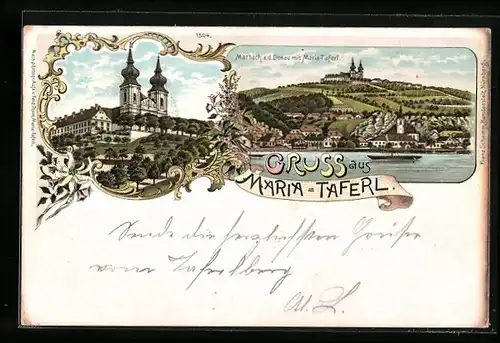 1504.
Marbach a.d. Donau mit Maria Taferl
GRUSS aus
MARIA-TAFERL.
Sende die herzlichsten Grüße
vom Taferlberg